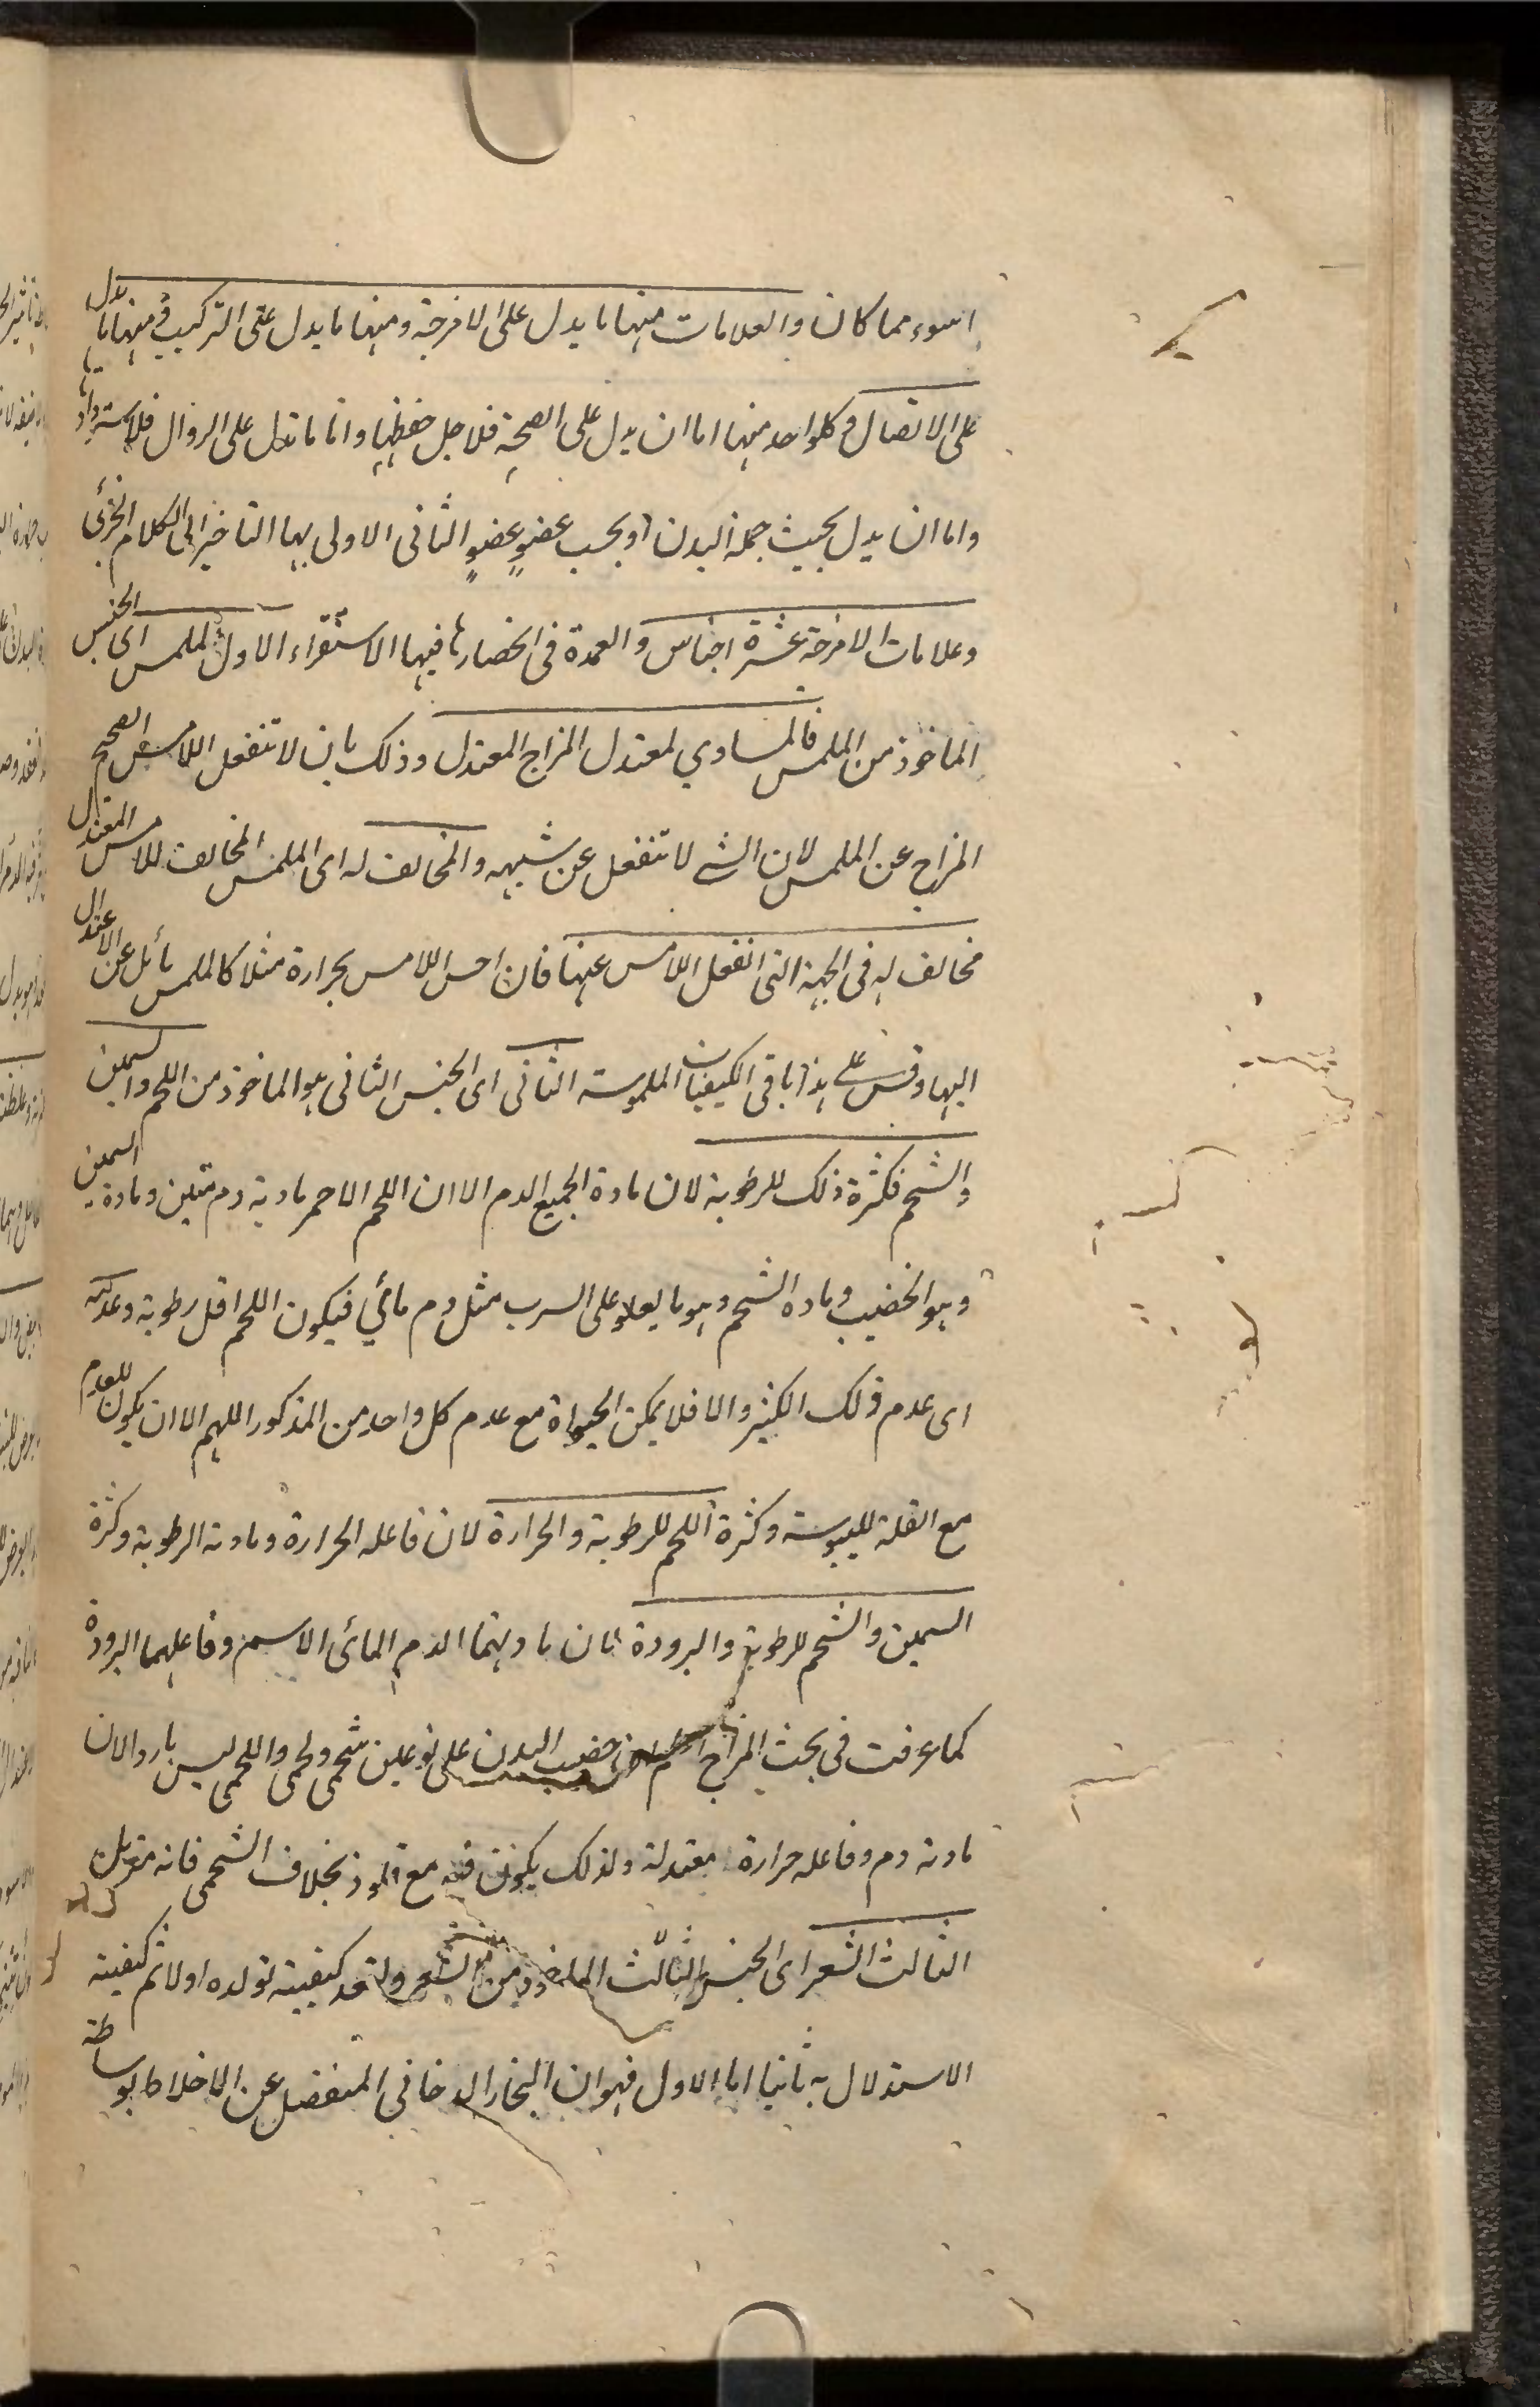 اسوء مما كان والعلامات منها ما يدل على الامزجة ومنها ما يدل على التركيب ومنها ما يدل
على الاتصال وكلواحد منها اما ان يدل على الصحة فلاجل حفظها واما ما تدل على الزوال فلاسترداد
واما ان يدل بحيث جملة البدن او بحسب عضو عضو الثانى الاولى بها التاخير الى الكلام الجزئى
وعلامات الامزجة عشرة اجناس والعمدة فى انحصارها فيها الاستقراء الاول الملمس اى الجنس
الماخوذ من الملمس فالمساوي لمعتدل المزاج المعتدل وذلك بان لا تنفعل اللامس الصحيح
المزاج عن الملمس لان الشى لا تنفعل عن شبيهه والمخالف له اى الملمس المخالف للامس المعتدل
مخالف له فى الجهة التى انفعل اللامس عنها فان احس اللامس بحرارة مثلا كالملمس مائل عن الاعتدال
اليها وقس على هذا باقى الكيفيات الملموسة الثانى اى الجنس الثانى هو الماخوذ من اللحم والسمين
والشحم فكثرة ذلك للرطوبة لان مادة الجميع الدم الا ان اللحم الاحمر مادته دم متين ومادة السمين
وهو الخضيب ومادة الشحم وهو ما يعلو على السرب مثل دم مائي فيكون اللحم اقل رطوبة وعدمه
اى عدم ذلك الكثير والا فلا يمكن الحيواة مع عدم كل واحد من المذكور اللهم الا ان يكون للعدم
مع القلة لليبوسة وكثرة اللحم للرطوبة والحرارة لان فاعله الحرارة ومادته الرطوبة وكثرة
السمين والشحم للرطوبة والبرودة لان مادتهما الدم المائى الاسمر وفاعلهما البرودة
كما عرفت فى بحث المزاج خضيب البدن على نوعين شحمى ولحمى واللحمى ليس بارد الان
مادته دم وفاعله حرارة معتدلة ولذلك يكون مع بخلاف الشحمى فانه
الثالث الشعر اى الجنس الثالث الماخوذ من الشعر ولنعد كيفية تولده اولا ثم كيفية
الاستدلال به ثانيا اما الاول فهو ان البخار الدخاني المنفصل عن الاخلاط بوساطة